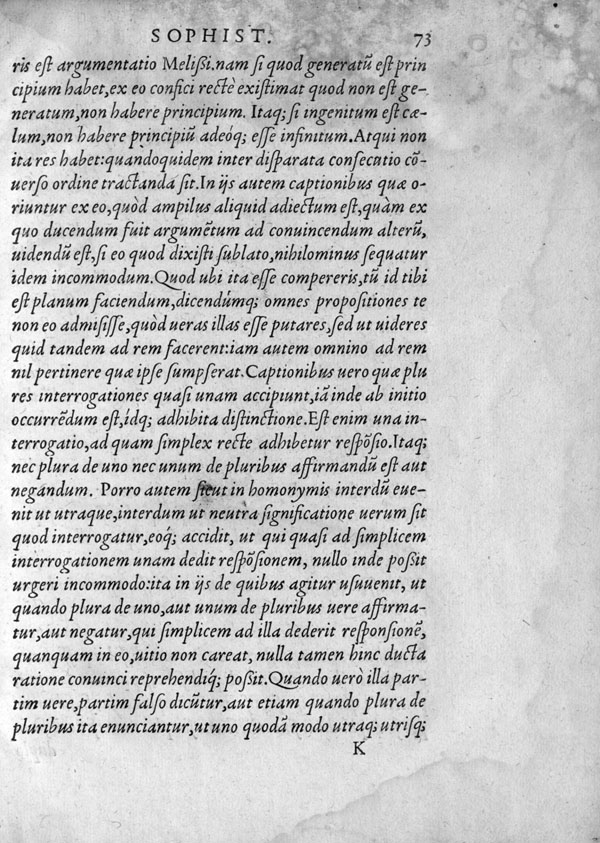 SOPHIST. 73
ris est argumentatio Melißi.nam si quod generatũ est prin
cipium habet,ex eo confici rectè existimat quod non est ge-
neratum,non habere principium. Itaq; si ingenitum est cæ-
lum,non habere principiũ adeóq; esse infinitum.Atqui non
ita res habet:quandoquidem inter disparata consecutio cõ-
uerso ordine tractanda sit.In ijs autem captionibus quæ o-
riuntur ex eo,quòd ampilus aliquid adiectum est,quàm ex
quo ducendum fuit argumẽtum ad conuincendum alterũ,
uidendũ est,si eo quod dixisti sublato,nihilominus sequatur
idem incommodum.Quod ubi ita esse compereris,tũ id tibi
est planum faciendum,dicendúmq; omnes propositiones te
non eo admisisse,quòd ueras illas esse putares,sed ut uideres
quid tandem ad rem facerent:iam autem omnino ad rem
nil pertinere quæ ipse sumpserat.Captionibus uero quæ plu
res interrogationes quasi unam accipiunt,iã inde ab initio
occurrẽdum est,ídq; adhibita distinctione.Est enim una in-
terrogatio,ad quam simplex recte adhibetur respõsio.Itaq;
nec plura de uno nec unum de pluribus affirmandũ est aut
negandum. Porro autem sicut in homonymis interdũ eue-
nit ut utraque,interdum ut neutra significatione uerum sit
quod interrogatur,eoq́; accidit, ut qui quasi ad simplicem
interrogationem unam dedit respõsionem, nullo inde poßit
urgeri incommodo:ita in ijs de quibus agitur usuuenit, ut
quando plura de uno,aut unum de pluribus uere affirma-
tur,aut negatur,qui simplicem ad illa dederit responsionẽ,
quanquam in eo,uitio non careat, nulla tamen hinc ducta
ratione conuinci reprehendiq; poßit.Quando uerò illa par-
tim uere,partim falso dicũtur,aut etiam quando plura de
pluribus ita enunciantur,ut uno quodã modo utraq; utrisq;
K